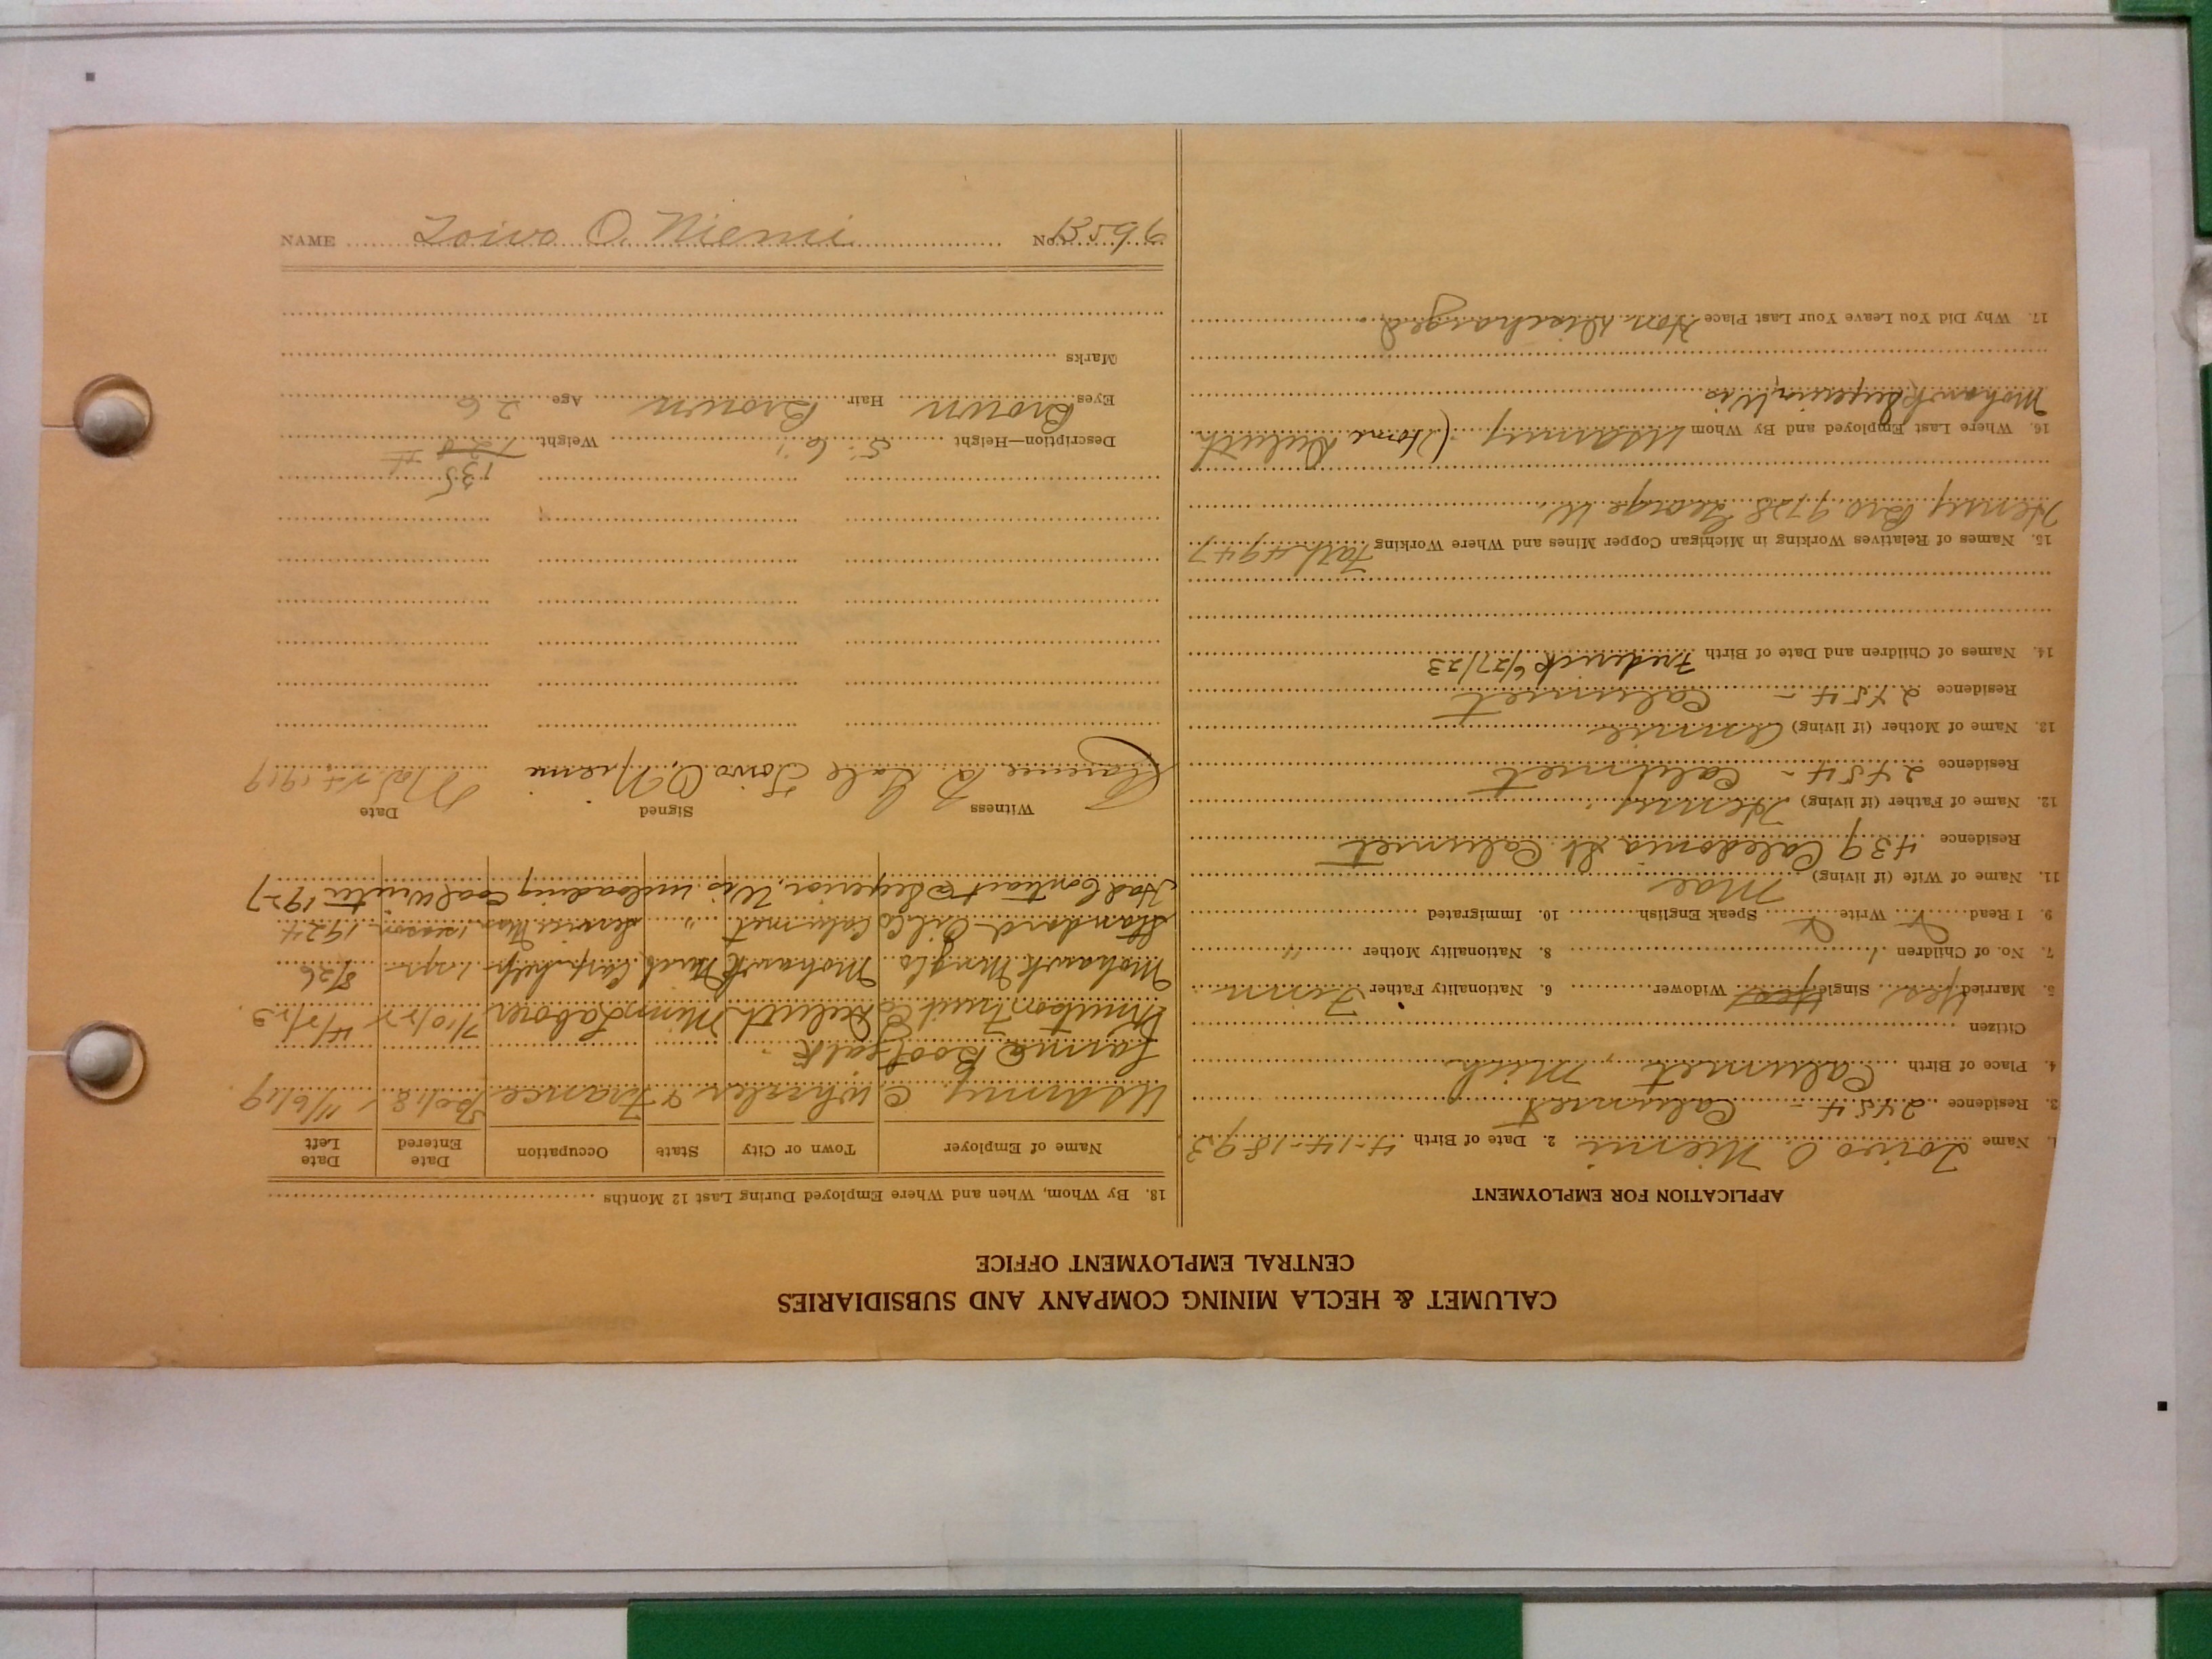 CALUMET & HECLA MINING COMPANY AND SUBSIDIARIES
CENTRAL EMPLOYMENT OFFICE
APPLICATION FOR EMPLOYMENT
1. Name Toivo O Niemi 2. Date of Birth 4-14-1893
3. Residence 2454 - Calumet
4. Place of Birth Calumet, Mich
Citizen
5. Married Yes Single Yes Widower 6. Nationality Father Finn
7. No. of Children 1 8. Nationality Mother "
9. I Read Write Speak English 10. Immigrated
11. Name of Wife (if living) Mae
Residence 439 Caledonia St. Calumet
12. Name of Father (if living) Henry
Residence 2454 - Calumet
13. Name of Mother (if living) Annie
Residence 2454 - Calumet
14. Names of Children and Date of Birth Frederick 6/27/23
15. Names of Relatives Working in Michigan Copper Mines and Where Working Fath 4947
Henry Bro 9728 George
16. Where Last Employed and By Whom US army (Home Duluth
Mohawk Superior Wis
17. Why Did You Leave Your Last Place Hon Discharged
18. By Whom, When and Where Employed During Last 12 Months
Name of Employer Town or City State Occupation Date Entered Date Left
US army Wheeler & France 11/6/19
Knutson Fruit Co Duluth Minn Laborer 7/10/22 4/5/23
Mohawk Mng Co. Mohawk Mich Carp. help 1 yr 8/26
Standard Oil Co Calumet " Service Man 1 season 1924
Had Contract @ Superior, Wis unloading coal Winter 1927
Witness Signed Date
Clarence B. Toivo O. Niemi 1919
Description—Height 5' 6" Weight 128 135
Eyes Brown Hair Brown Age 26
Marks
NAME Toivo O. Niemi No. 13596